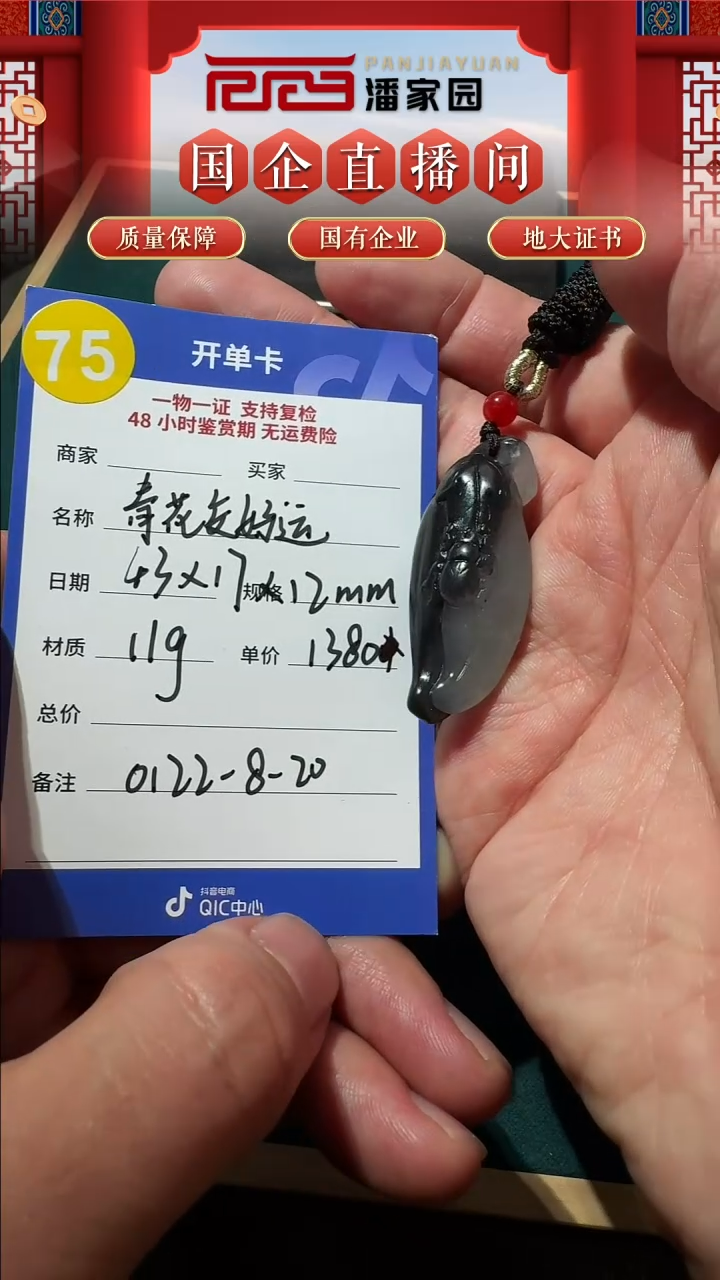 PANJIAYUAN
潘家园
国企直播间
质量保障 国有企业 地大证书
75
开单卡
一物一证 支持复检
48小时鉴赏期 无运费险
商家 买家
名称 青花交好运
日期 43×17×12mm 规格
材质 11g 单价 1380
总价
备注 0122-8-20
抖音电商
QIC中心